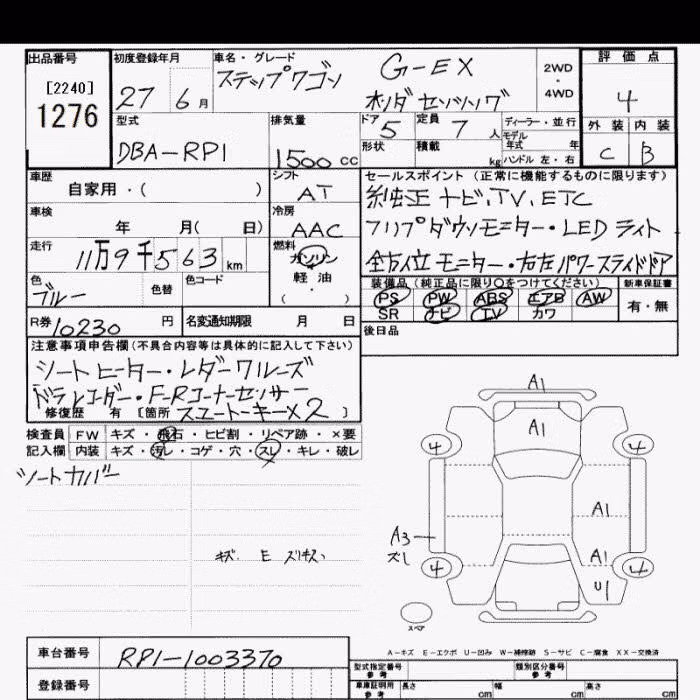 出品番号
[2240]
1276
初度登録年月
27 6月
車名・グレード
ステップワゴン G-EX
ホンダセンシング
2WD・4WD
評価点
4
外装 内装
C B
型式
DBA-RP1
排気量
1500cc
ドア 5
定員 7人
ディーラー・並行
モデル年式 年
形状
積載 kg
ハンドル 左・右
車歴
自家用・( )
シフト
AT
セールスポイント (正常に機能するものに限ります)
純正ナビ、TV、ETC
フリップダウンモニター・LEDライト
全方位モニター・右左パワースライドドア
車検
年 月( 日)
冷房
AAC
走行
11万9千563km
燃料
ガソリン
軽・油
( )
色
ブルー
色替
色コード
装備品 (純正品に限り○をつけてください)
PS PW ABS エアB AW
SR ナビ TV カワ
新車保証書
有・無
R券 10230円
名変通知期限 月 日
後日品
注意事項申告欄 (不具合内容等は具体的に記入して下さい)
シートヒーター・レダークルーズ
ドラレコーダー・F-Rコーナーセンサー
修復歴 有 [箇所 スエートーキーX2 ]
検査員 FW キズ・飛石・ヒビ割・リペア跡・×要
記入欄 内装 キズ・汚レ・コゲ・穴・スレ・キレ・破レ
シートカバー
キズ E スリキズ
A1
A1
4 4
A1
A3
ズレ
A1
4 4
U1
スペア
A-キズ E-エクボ U-凹み W-補修跡 S-サビ C-腐食 XX-交換済
車台番号
RP1-1003370
登録番号
型式指定番号 参考
類別区分番号 参考
車庫証明用 参考
長さ cm
幅 cm
高さ cm